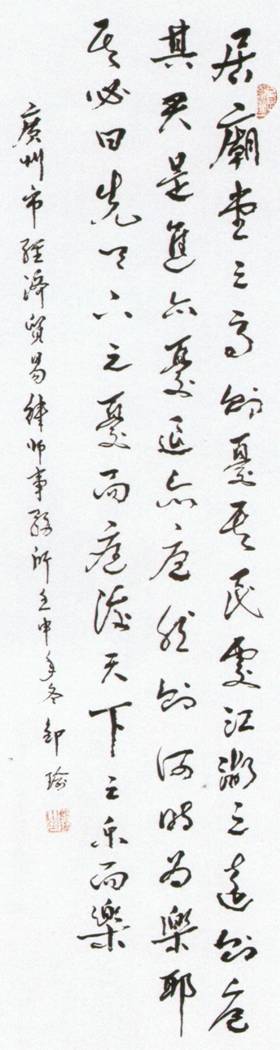 居廟堂之高則憂其民處江湖之遠則憂
其君是進亦憂退亦憂然則何時為樂耶
其必曰先天下之憂而憂後天下之樂而樂
廣州市經濟貿易律師事務所壬申年冬邹瑜